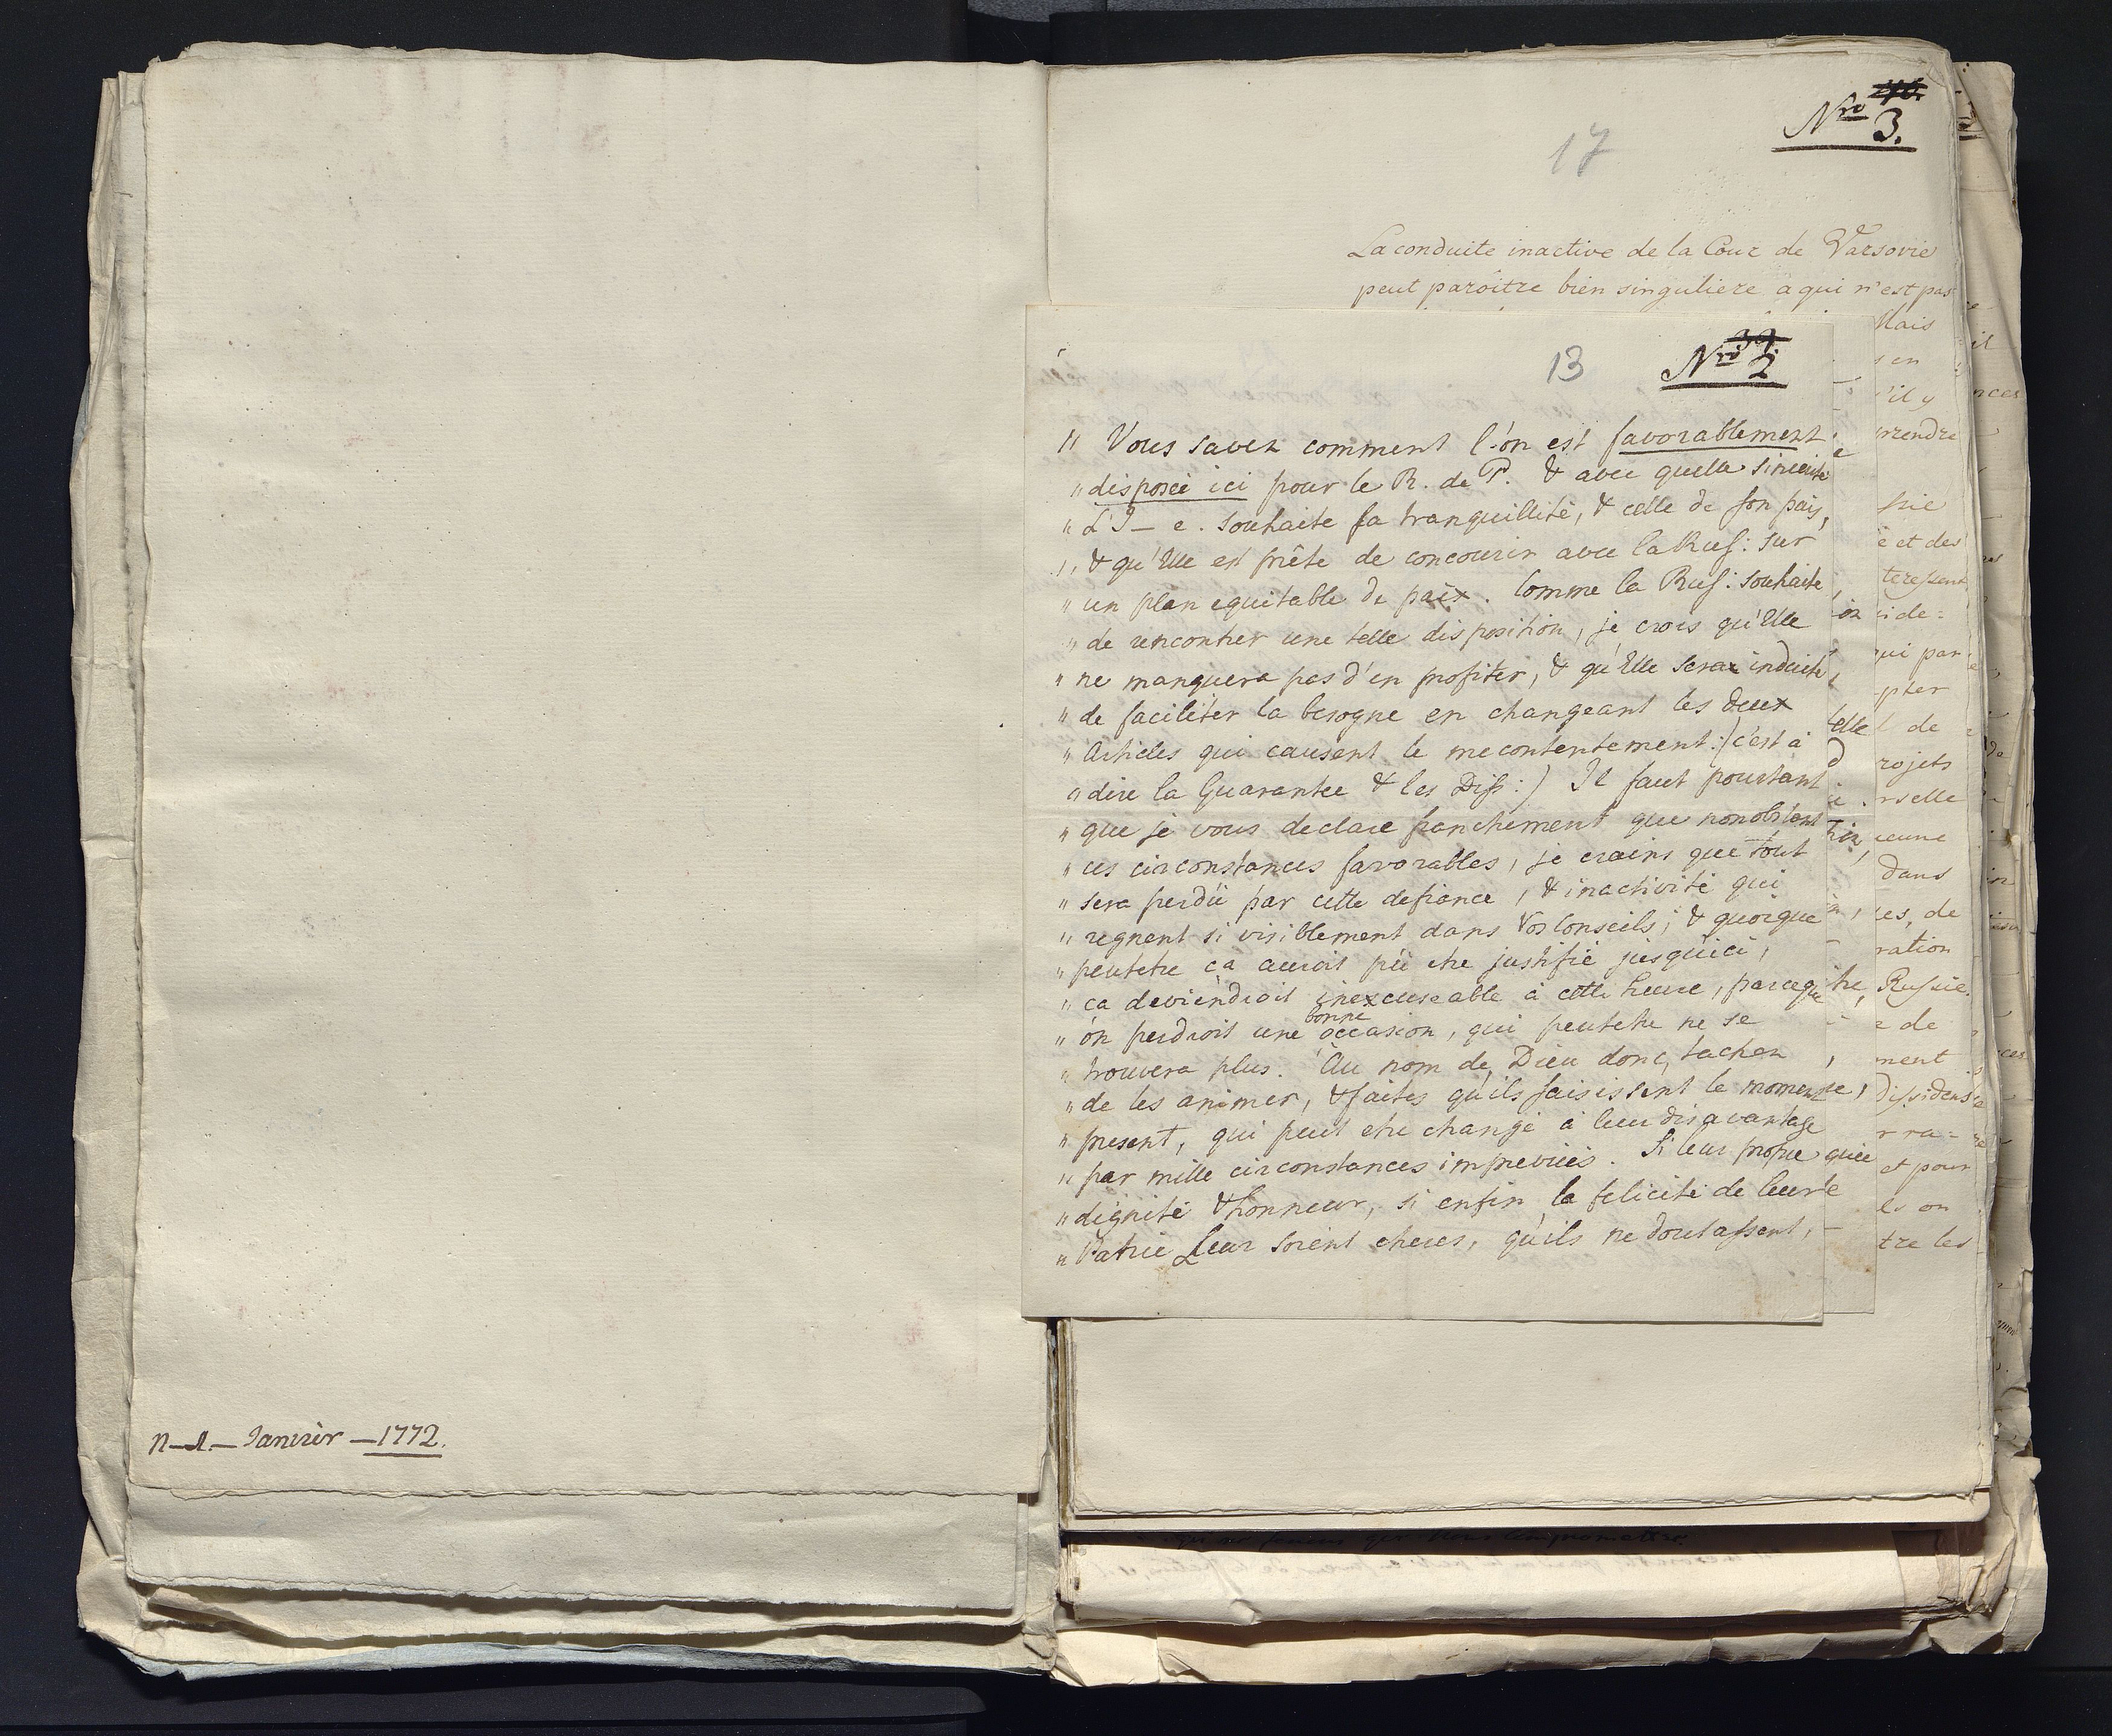 n—d.— Janvier — 1772.
Nro 3.
17
La conduite inactive de la Cour de Varsovie
peut paroitre bien singuliere a qui n'est pas
13
Nro 2.
" Vous savez comment l'on est favorablement
" disposée ici pour le R. de P. & avec quelle sincerité
" L'I — e. souhaite sa tranquillité, & celle de son païs,
" & qu'Elle est prête de concourir avec la Rus: sur
" un plan equitable de paix. Comme la Rus: souhaite
" de rencontrer une telle disposition, je crois qu'Elle
" ne manquera pas d'en profiter, & qu'Elle sera induite
" de faciliter la besogne en changeant les deux
" Articles qui causent le mecontentement :(c'est à
" dire la Guarantee & les Diss:) Il faut pourtant
" que je vous declare franchement que nonobstant
" ces circonstances favorables, je crains que tout
" sera perdü par cette defiance, & inactivité qui
" regnent si visiblement dans Vos Conseils; & quoique
" peutetre ça auroit pü etre justifié jusqu'ici,
" ca deviendroit inexcuseable à cette heure, parceque
" on perdroit une bonne occasion, qui peutetre ne se
" trouvera plus. Au nom de Dieu donc, tachez
" de les animer, & faites qu'ils saisissent le moment
" present, qui peut etre changé à leur disavantage
" par mille circonstances imprevües. Si leur propre
" dignité & honneur, si enfin la felicité de leur
" Patrie Leur soient cheres, qu'ils ne doutassent,
Mais
s en
'il y
prendre
et des
teressent
ide=
qui par
pter
de
rojets
rselle
dans
es, de
ration
Russie.
de
ment
Dissidens
r ra=
et pour
on
tre les